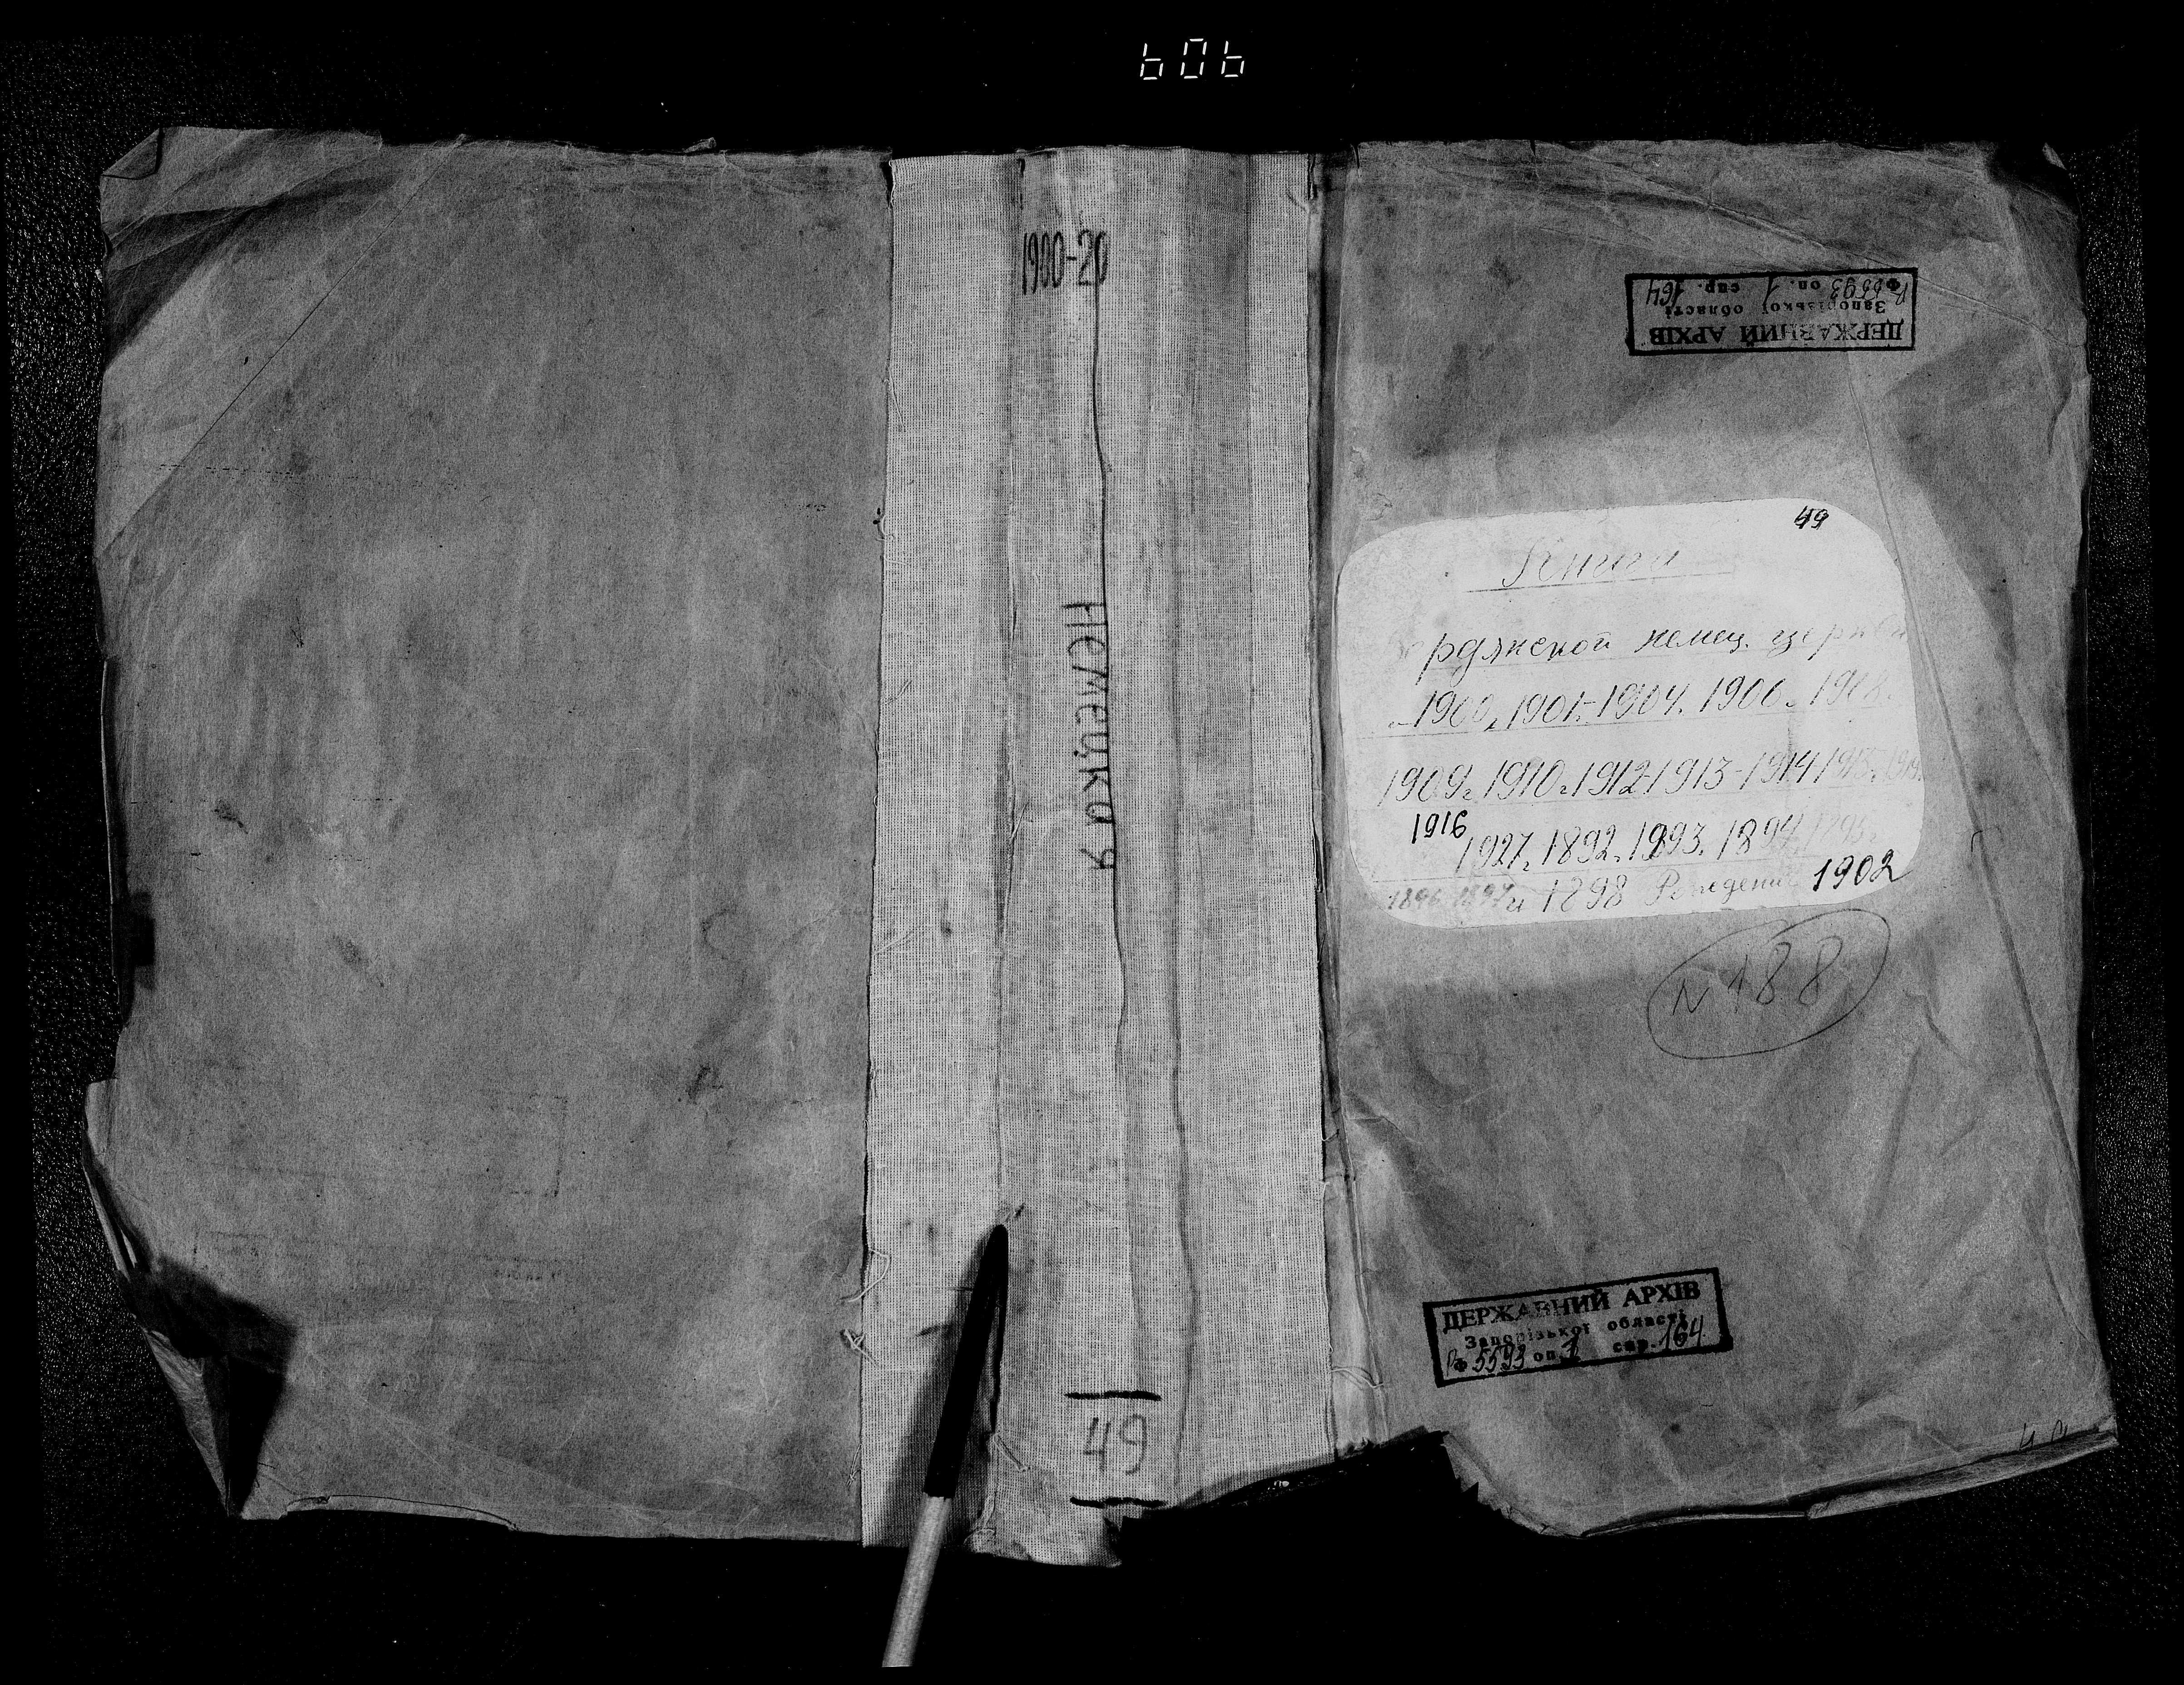 606
1900-20
Немецкая
49
ДЕРЖАВНИЙ АРХІВ
Запорізької області
Р Ф 5593 оп. 1 спр. 164
49
Книга
Бердянской немец. церкви
1900, 1901-1904. 1906. 1908.
1909г. 1910г. 1912-1913-1914 1915г. 1919.
1916
1927. 1892. 1893. 1894. 1895.
1896. 1897 и 1898 Рождение 1902
N 188
ДЕРЖАВНИЙ АРХІВ
Запорізької області
Р Ф 5593 оп. 1 спр. 164